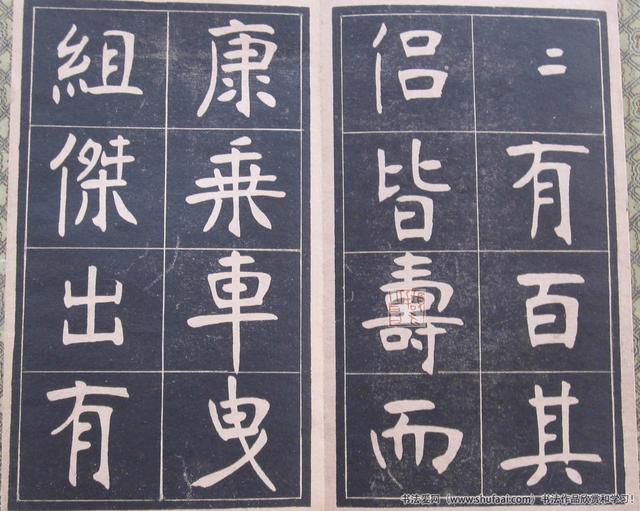 〻有百其
侶皆壽而
康乗車曳
組傑出有
书法爱网（www.shufaai.com）书法作品欣赏和学习！